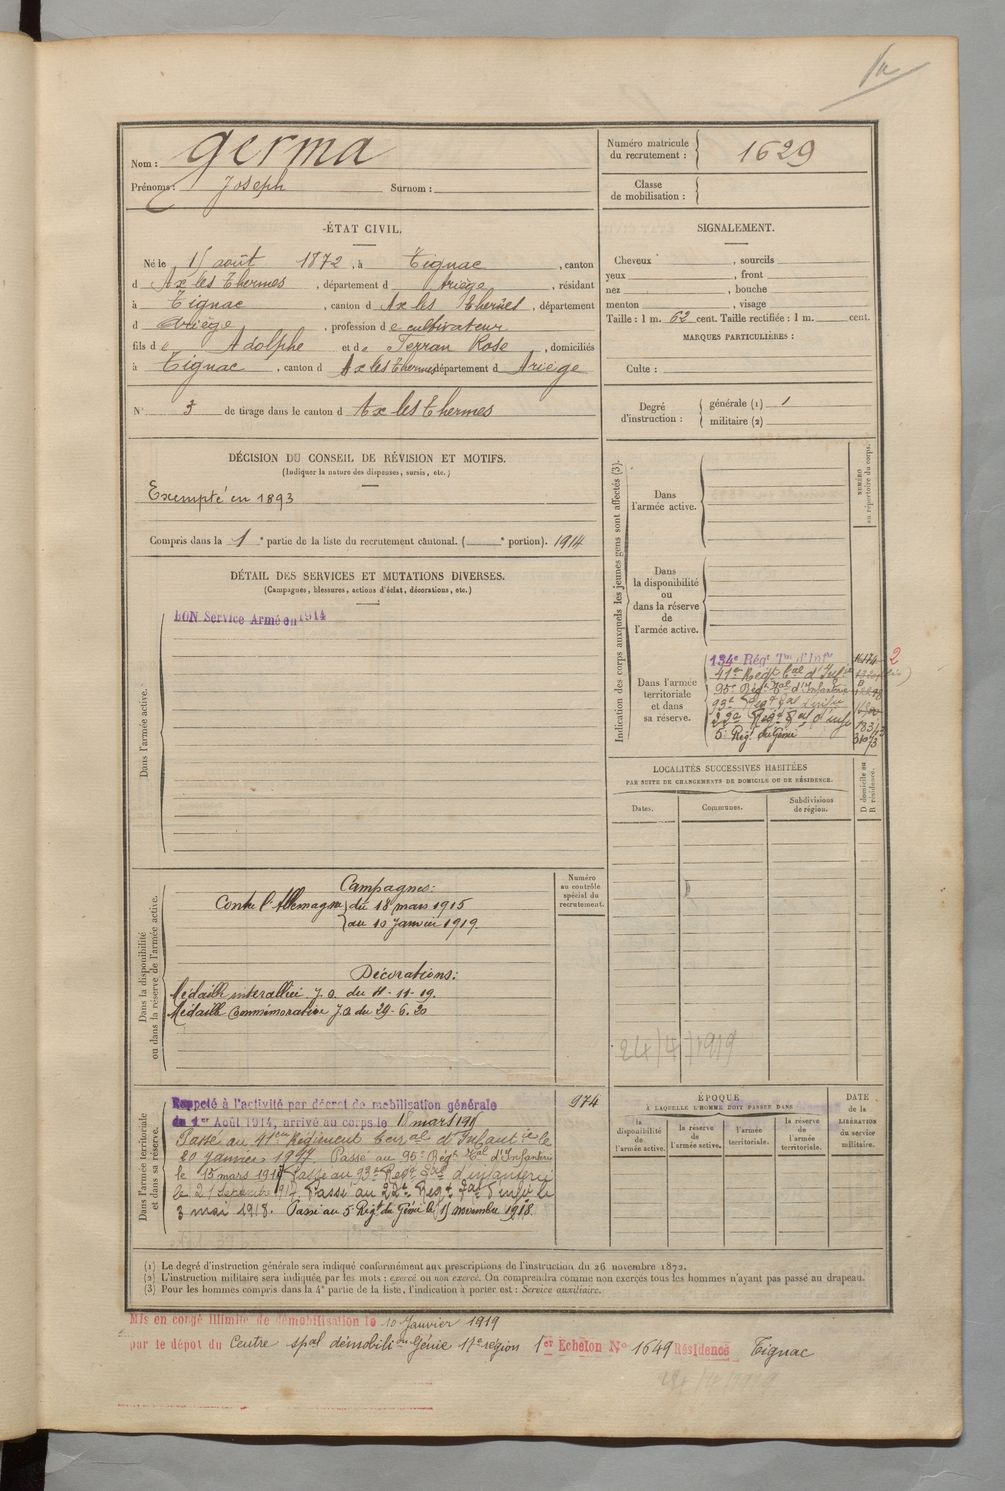 Nom : Germa
Prénoms : Joseph Surnom :
Numéro matricule du recrutement : 1629
Classe de mobilisation :
ÉTAT CIVIL.
Né le 15 août 1872, à Tignac, canton
d Ax les Thermes, département d Ariège, résidant
à Tignac, canton d Ax les Thermes, département
d Ariège, profession de cultivateur
fils de Adolphe et de Terran Rose, domiciliés
à Tignac, canton d Ax les Thermes département d Ariège
N° 3 de tirage dans le canton d Ax les Thermes
SIGNALEMENT.
Cheveux , sourcils
yeux , front
nez , bouche
menton , visage
Taille : 1 m. 62 cent. Taille rectifiée : 1 m. cent.
MARQUES PARTICULIÈRES :
Culte :
Degré d'instruction : générale (1) 1
militaire (2)
DÉCISION DU CONSEIL DE RÉVISION ET MOTIFS.
(Indiquer la nature des dispenses, sursis, etc.)
Exempté en 1893
Compris dans la 1e partie de la liste du recrutement cantonal. ( e portion). 1914
DÉTAIL DES SERVICES ET MUTATIONS DIVERSES.
(Campagnes, blessures, actions d'éclat, décorations, etc.)
Dans l'armée active.
BON Service Armé en 1914
Indication des corps auxquels les jeunes gens sont affectés (3).
NUMÉRO au répertoire du corps.
Dans l'armée active.
Dans la disponibilité ou dans la réserve de l'armée active.
Dans l'armée territoriale et dans sa réserve.
134e Régt Tal d'Infie
41e Régt tal d'Infie
95e Régt tal d'Infanterie
93e Régt tal d'infie
22e Régt tal d'infie
5e Régt du Génie
2
LOCALITÉS SUCCESSIVES HABITÉES
PAR SUITE DE CHANGEMENTS DE DOMICILE OU DE RÉSIDENCE.
Dates.
Communes.
Subdivisions de région.
D domicile ou R résidence.
24/4/1919
Dans la disponibilité ou dans la réserve de l'armée active.
Numéro au contrôle spécial du recrutement.
Campagnes :
Contre l'Allemagne du 18 mars 1915
au 10 Janvier 1919.
Décorations :
Médaille interalliée J.O. du 11-11-19.
Médaille Commémorative J.O du 29-6.20
Dans l'armée territoriale et dans sa réserve.
974
Rappelé à l'activité par décret de mobilisation générale
du 1er Août 1914, arrivé au corps le 18 mars 1915
Passé au 41eme Régiment terral d'Infantie le
20 janvier 1917 Passé au 95e Régt tal d'Infanterie
le 15 mars 1917 Passé au 93e Régt tal d'infanterie
le 21 Septembre 1917. Passé au 22e Régt tal d'infie le
3 mai 1918. Passé au 5e Régt du Génie le 15 novembre 1918.
ÉPOQUE
À LAQUELLE L'HOMME DOIT PASSER DANS
la disponibilité de l'armée active.
la réserve de l'armée active.
l'armée territoriale.
la réserve de l'armée territoriale.
DATE de la LIBÉRATION du service militaire.
(1) Le degré d'instruction générale sera indiqué conformément aux prescriptions de l'instruction du 26 novembre 1872.
(2) L'instruction militaire sera indiquée par les mots : exercé ou non exercé. On comprendra comme non exercés tous les hommes n'ayant pas passé au drapeau.
(3) Pour les hommes compris dans la 4e partie de la liste, l'indication à porter est : Service auxiliaire.
Mis en congé illimité de démobilisation le 10 Janvier 1919
par le dépot du Centre spal démobilion Génie 17e région 1er Echelon N° 1649 Résidence Tignac
24/4/1919